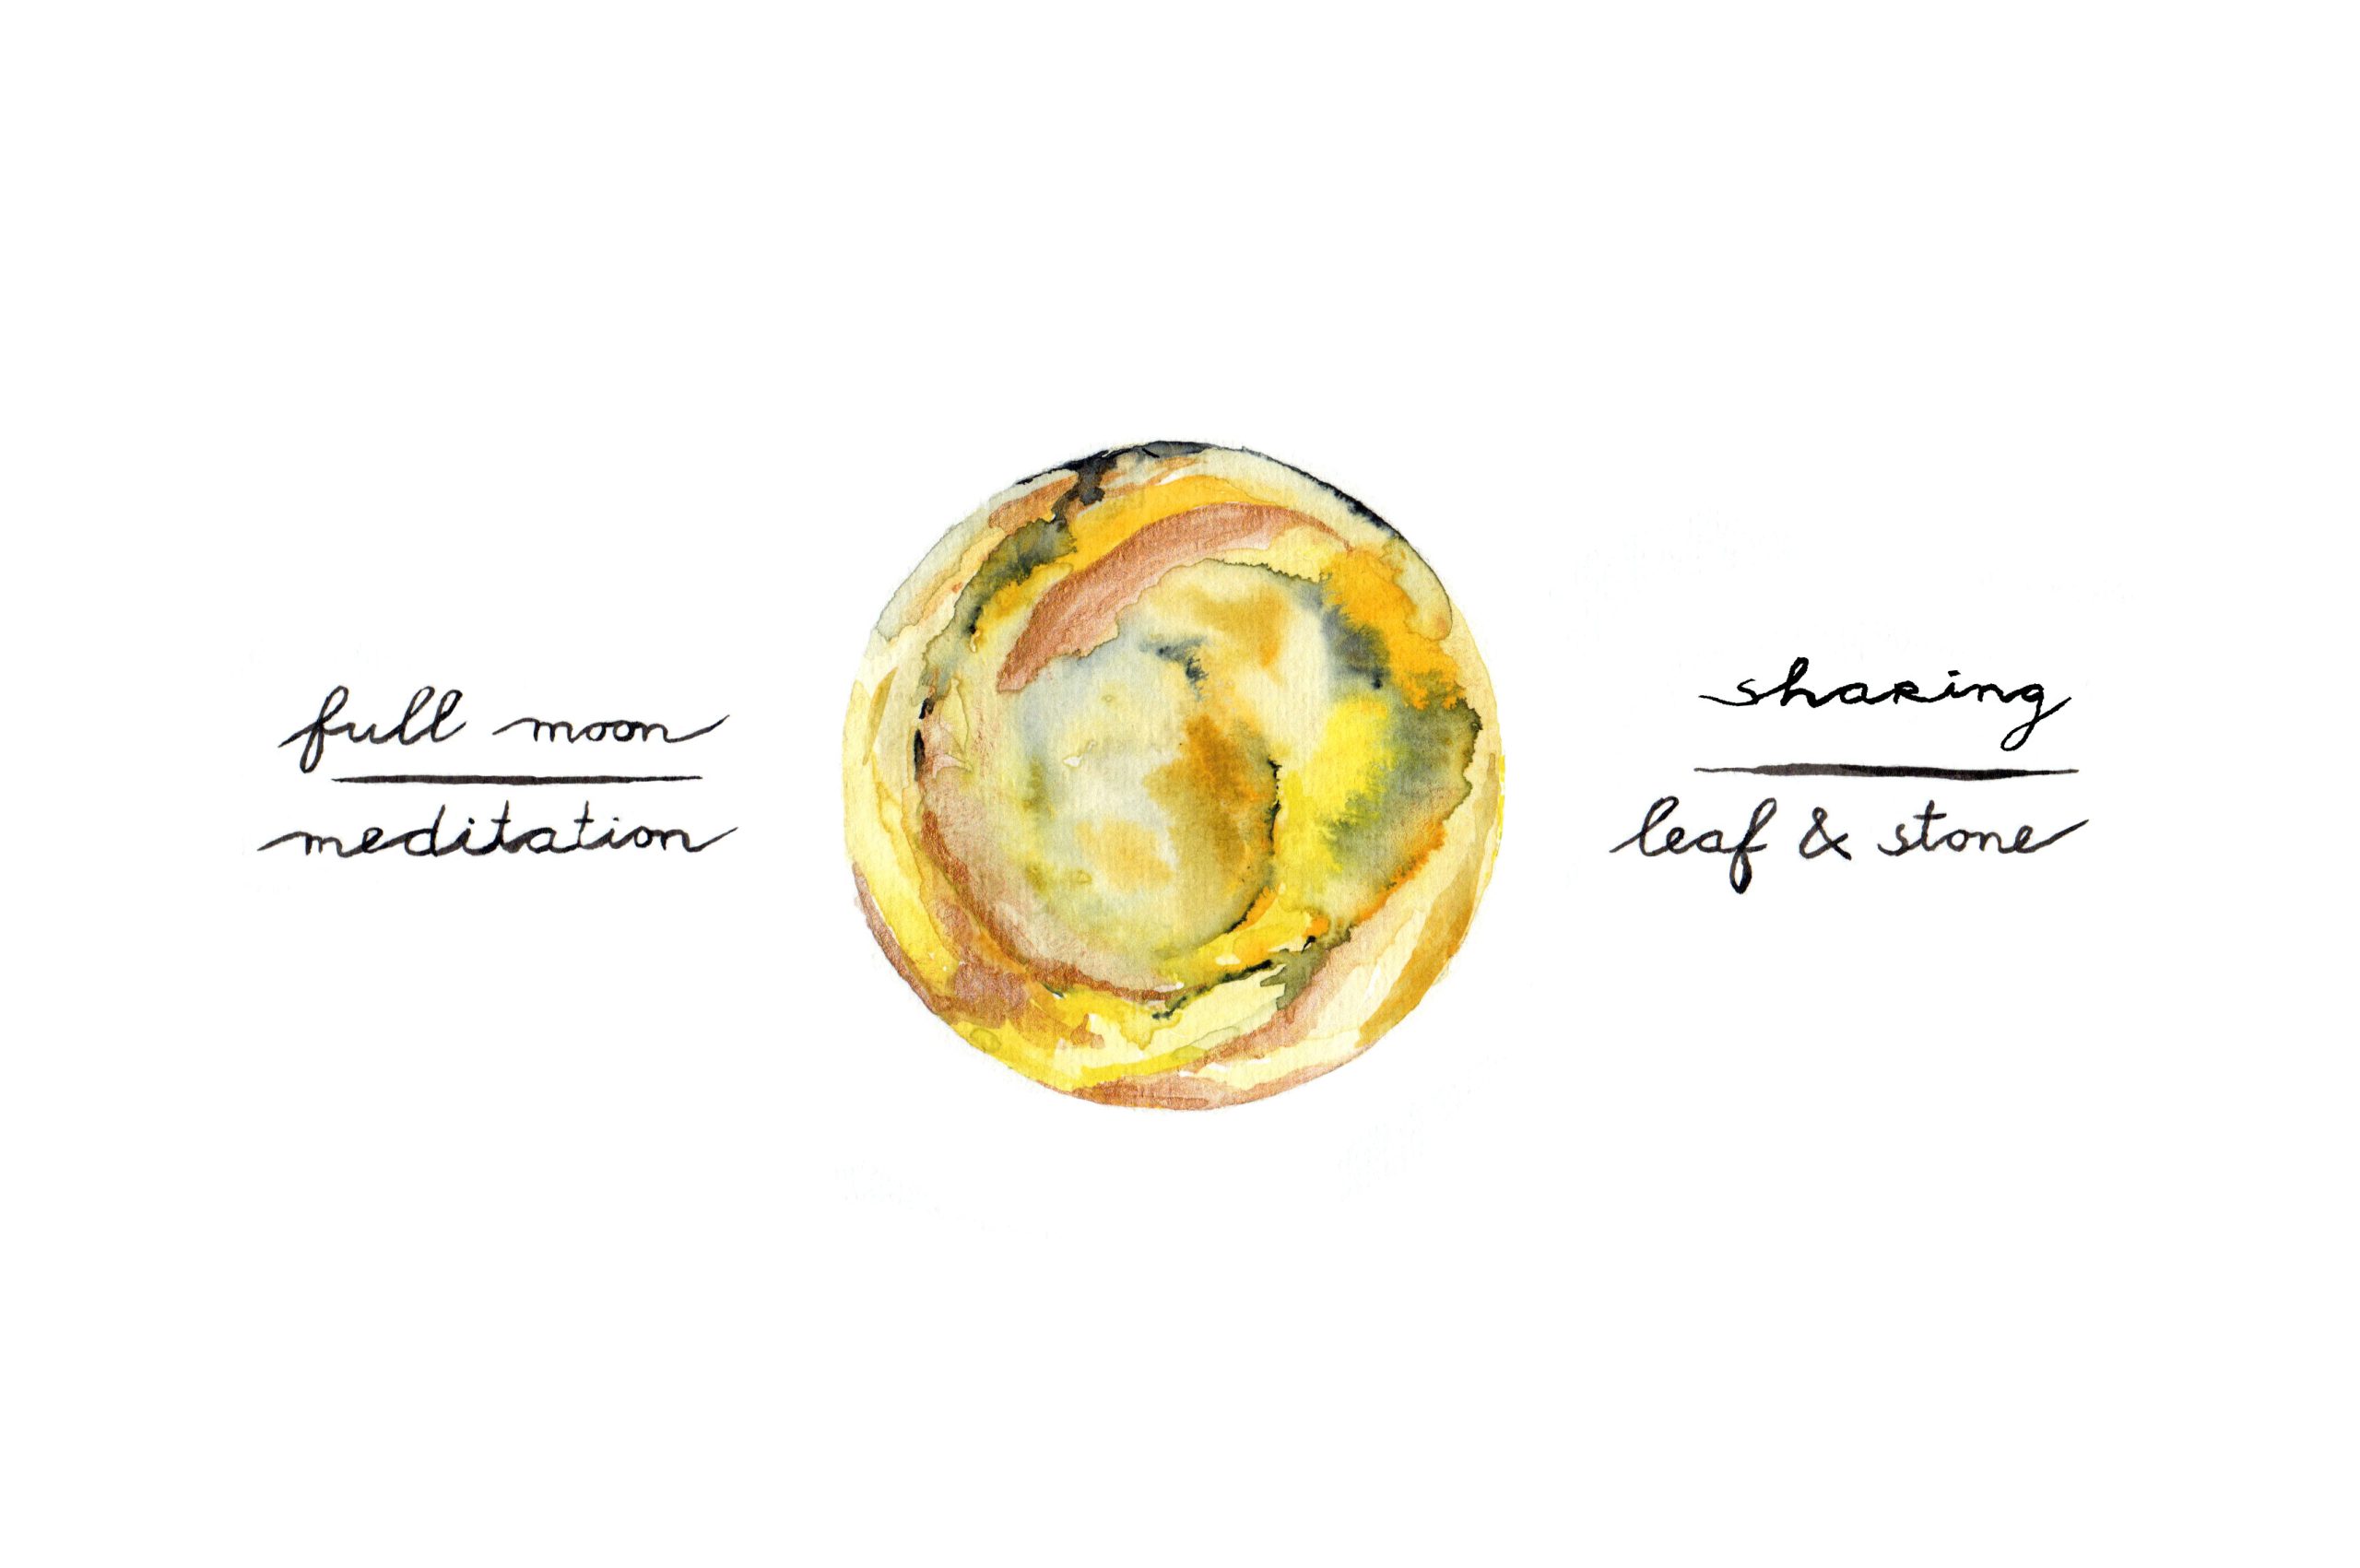 full moon
meditation
sharing
leaf & stone